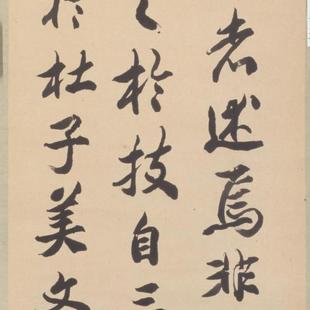 者述焉非
之於技自三
於杜子美文